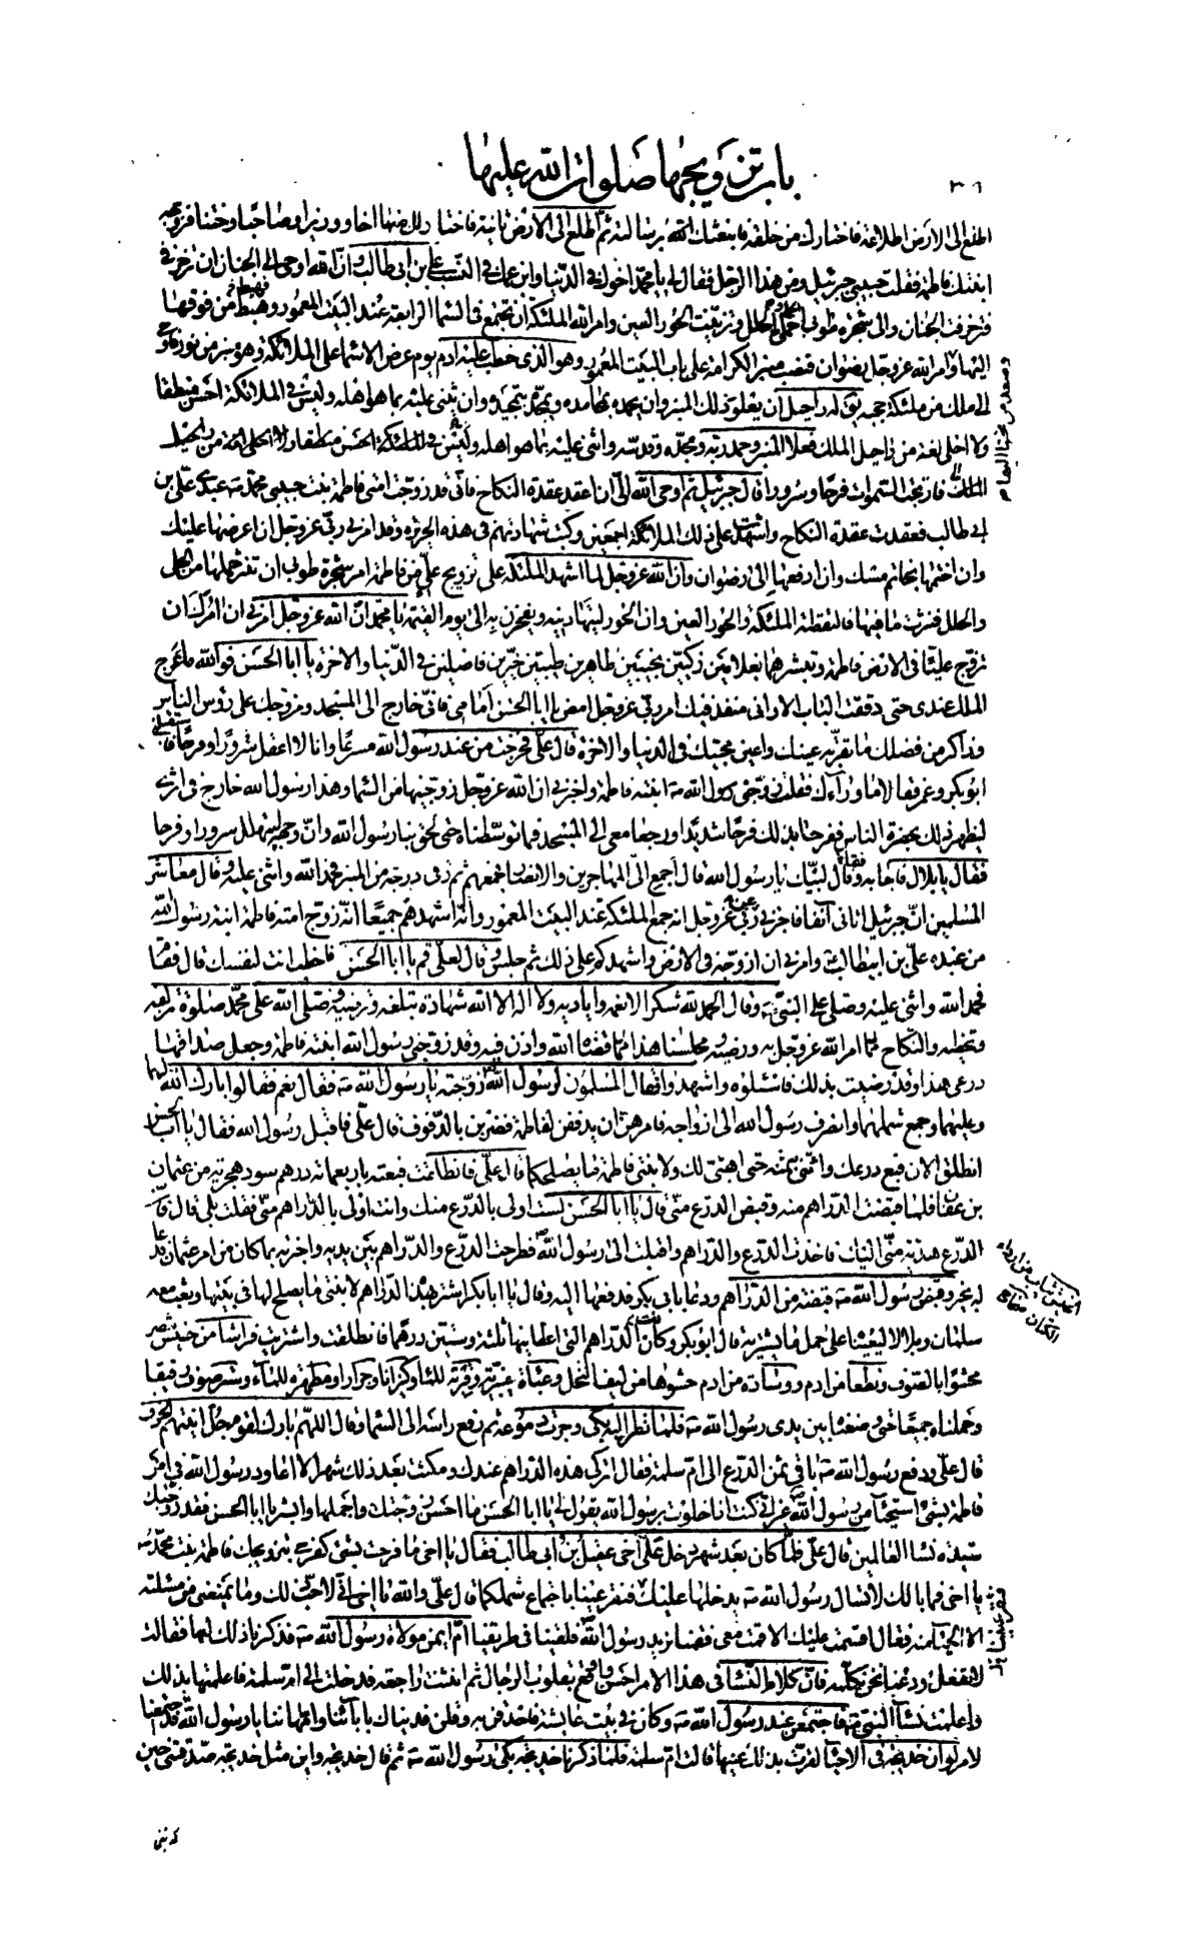 باب تزويجها صلوات الله عليها
٣٦
اطلع الى الارض اطلاعة فاختارك من خلقه فابتعثك الله برسالته ثم اطلع الى الارض ثانية فاختار لك منها اخا ووزيرا وصاحبا وختنا فزوجه
ابنتك فاطمة فقلت حبيبي جبرئيل ومن هذا الرجل فقال لي يا محمد اخوك في الدنيا وابن عمك في النسب علي بن ابي طالب وان الله اوحى الى الجنان ان تزخرفي
فتزخرفت الجنان والى شجرة طوبى احملي الحلل وتزينت الحور العين وامر الله الملئكة ان تجتمع في السماء الرابعة عند البيت المعمور فهبط من فوقها
اليها وامر الله عز وجل رضوان فنصب منبر الكرامة على باب البيت المعمور وهو الذي خطب عليه ادم يوم عرض الاسماء على الملائكة وهو منبر من نور فاوحى
الى ملك من ملئكة حجبه يقال له راحيل ان يعلو ذلك المنبر وان يحمده بمحامده ويمجده بتمجيده وان يثني عليه بما هو اهله وليس في الملائكة احسن منطقا
ولا احلى لغة من راحيل الملك فعلا المنبر وحمد ربه ومجده وقدسه واثنى عليه بما هو اهله
الملك فارتجت السموات فرحا وسرورا قال جبرئيل ثم اوحى الله الي ان اعقد عقدة النكاح فاني قد زوجت امتي فاطمة بنت حبيبي محمد ص عبدي علي بن
ابي طالب فعقدت عقدة النكاح واشهدت على ذلك الملائكة اجمعين وكتبت شهادتهم في هذه الحريرة وقد امرني ربي عز وجل ان اعرضها عليك
وان اختمها بخاتم مسك وان ادفعها الى رضوان وان الله عز وجل لما اشهد الملئكة على تزويج علي من فاطمة امر شجرة طوبى ان تنثر حملها من الحلي
والحلل فنثرت ما فيها فالتقطته الملئكة والحور العين وان الحور ليتهادينه ويفخرن به الى يوم القيمة يا محمد ان الله عز وجل امرني ان امرك ان
تزوج عليا في الارض فاطمة وتبشرهما بغلامين زكيين نجيبين طاهرين طيبين خيرين فاضلين في الدنيا والاخرة يا ابا الحسن فوالله ما عرج
الملك عندي حتى دققت الباب الا واني منفذ فيك امر ربي عز وجل امض يا ابا الحسن امامي فاني خارج الى المسجد ومزوجك على رؤس الناس
وذاكر من فضلك ما تقر به عينك واعين محبيك في الدنيا والاخرة قال علي فخرجت من عند رسول الله مسرعا وانا لا اعقل سرورا وفرحا فاستقبلني
ابو بكر وعمر فقالا ما وراءك فقلت زوجني رسول الله ص ابنته فاطمة واخبرني ان الله عز وجل زوجنيها من السماء وهذا رسول الله خارج في اثري
ليظهر ذلك بحضرة الناس ففرحا بذلك فرحا شديدا ورجعا معي الى المسجد فما توسطناه حتى لحق بنا رسول الله وان وجهه ليتهلل سرورا وفرحا
فقال يا بلال فاجابه فقال لبيك يا رسول الله قال اجمع الي المهاجرين والانصار فجمعهم ثم رقى درجة من المنبر فحمد الله واثنى عليه وقال معاشر
المسلمين ان جبرئيل اتاني آنفا فاخبرني عن ربي عز وجل انه جمع الملئكة عند البيت المعمور وانه اشهدهم جميعا انه زوج امته فاطمة ابنة رسول الله
من عبده علي بن ابيطالب وامرني ان ازوجه في الارض واشهدكم على ذلك ثم جلس وقال لعلي قم يا ابا الحسن فاخطب انت لنفسك قال فقام
فحمد الله واثنى عليه وصلى على النبي ص وقال الحمد لله شكرا لانعمه واياديه ولا اله الا الله شهادة تبلغه وترضيه وصلى الله على محمد صلوة تزلفه
وتحظيه والنكاح مما امر الله عز وجل به ورضيه ومجلسنا هذا مما قضاه الله واذن فيه وقد زوجني رسول الله ابنته فاطمة وجعل صداقها
درعي هذا وقد رضيت بذلك فاسئلوه واشهدوا فقال المسلمون لرسول الله زوجته يا رسول الله ص فقال نعم فقالوا بارك الله لهما
وعليهما وجمع شملهما وانصرف رسول الله الى ازواجه فامرهن ان يدففن لفاطمة فضربن بالدفوف قال علي فاقبل رسول الله فقال يا ابا الحسن
انطلق الان فبع درعك وائتني بثمنه حتى اهيئ لك ولابنتي فاطمة ما يصلحكما قال علي فانطلقت فبعته باربعمائة درهم سود هجرية من عثمان
بن عفان فلما قبضت الدراهم منه وقبض الدرع مني قال يا ابا الحسن لست اولى بالدرع منك وانت اولى بالدراهم مني فقلت بلى قال فان
الدرع هدية مني اليك فاخذت الدرع والدراهم واقبلت الى رسول الله فطرحت الدرع والدراهم بين يديه واخبرته بما كان من امر عثمان فدعا
له بخير وقبض رسول الله ص قبضة من الدراهم ودعا بابي بكر فدفعها اليه وقال يا ابا بكر اشتر بهذه الدراهم لابنتي ما يصلح لها في بيتها وبعث معه
سلمان وبلالا ليعيناه على حمل ما يشتريه قال ابو بكر وكانت الدراهم التي اعطانيها ثلثة وستين درهما فانطلقت واشتريت فراشا من خيش مصر
محشوا بالصوف ونطعا من ادم ووسادة من ادم حشوها من ليف النخل وعباءة خيبرية وقربة للماء وكيزانا وجرارا ومطهرة للماء وستر صوف رقيقا
وحملناه جميعا حتى وضعناه بين يدي رسول الله ص فلما نظر اليه بكى وجرت دموعه ثم رفع راسه الى السماء وقال اللهم بارك لقوم جل آنيتهم الخزف
قال علي ودفع رسول الله ص باقي ثمن الدرع الى ام سلمة فقال اتركي هذه الدراهم عندك ومكثت بعد ذلك شهرا لا اعاود رسول الله في امر
فاطمة بشئ استحياء من رسول الله غير اني كنت اذا خلوت برسول الله يقول لي يا ابا الحسن ما احسن زوجتك واجملها وابشر يا ابا الحسن فقد زوجتك
سيدة نساء العالمين قال علي فلما كان بعد شهر دخل علي اخي عقيل بن ابي طالب فقال يا اخي ما فرحت بشئ كفرحي بتزويجك فاطمة بنت محمد ص
يا اخي فما بالك لا تسال رسول الله ص يدخلها عليك فنقر عينا باجتماع شملكما قال علي والله يا اخي اني لاحب ذلك وما يمنعني من مسئلته
الا الحياء منه فقال اقسمت عليك الا قمت معي فقمنا نريد رسول الله فلقينا في طريقنا ام ايمن مولاة رسول الله ص فذكرنا ذلك لها فقالت
لا تفعل ودعنا نحن نكلمه فان كلام النساء في هذا الامر احسن واوقع بقلوب الرجال ثم انثنت راجعة فدخلت الى ام سلمة فاعلمتها بذلك
واعلمت نساء النبي ص فاجتمعن عند رسول الله ص وكان في بيت عايشة فاحدقن به وقلن فديناك بابائنا وامهاتنا يا رسول الله قد اجتمعنا
لامر لو ان خديجة في الاحياء لقرت بذلك عينها قالت ام سلمة فلما ذكرنا خديجة بكى رسول الله ص ثم قال خديجة واين مثل خديجة صدقتني حين